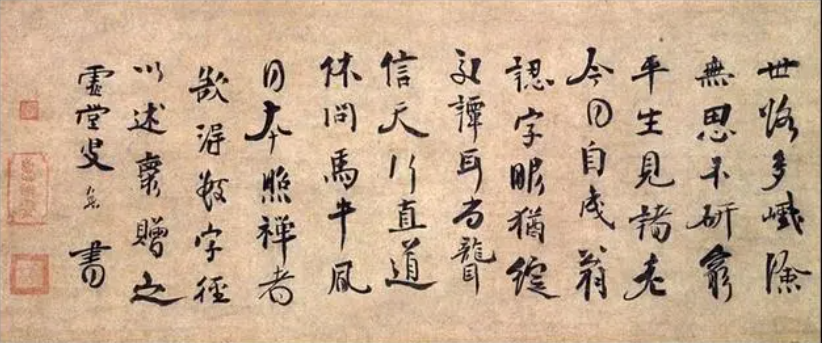 世路多巇險
無思不研窮
平生見諸老
今日自成翁
認字眼猶綻
交譚耳尚聾
信天行直道
休問馬牛風
日夲照禅者
欲得数字徑
以述褱贈之
虛堂叟書